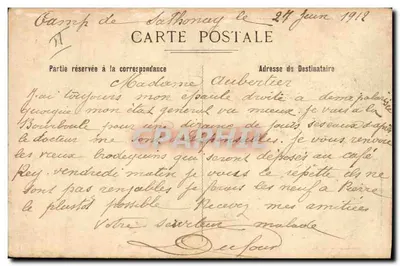 Camp de Sathonay le 27 Juin 1912
CARTE POSTALE
Partie réservée à la correspondance
Adresse du Destinataire
Madame Aubertier
J'ai toujours mon épaule droite a demi
Quoique mon état general va mieux je vais a la
Bourboule pour une dizaine de jours
le docteur me je vous renvoie
les vaux brodequins qui seront déposés au café
Rey vendredi matin je vous le répette ils ne
sont pas je les neuf a
le plustôt possible Recevez mes amitiées
Votre serviteur malade
Dufour
CARTPOSTAL